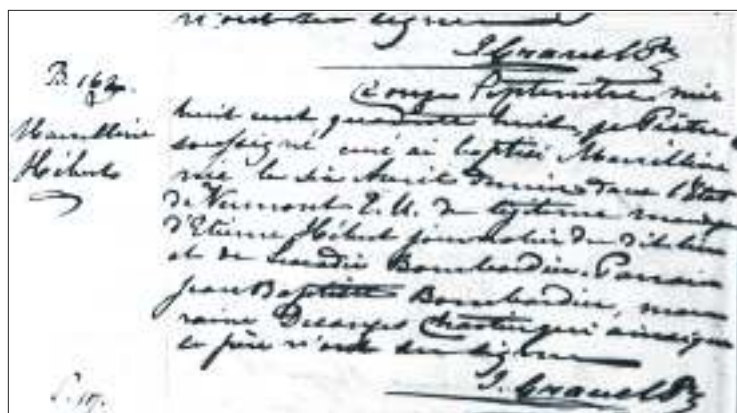 n'ont su signer
J. Gravel Ptre
B. 162.
Marcelline
Hébert
Onze Septembre mil
huit cent quarante huit, je Prêtre
soussigné curé ai baptisé Marcelline
née le dix Avril dernier dans l'Etat
de Vermont E. U. du légitime mariage
d'Etienne Hébert journalier du dit lieu
et de Bombardier. Parrain
Jean Baptiste Bombardier, mar-
raine Desanges qui ainsi que
le père n'ont su signer
J. Gravel Ptre
S. 107.